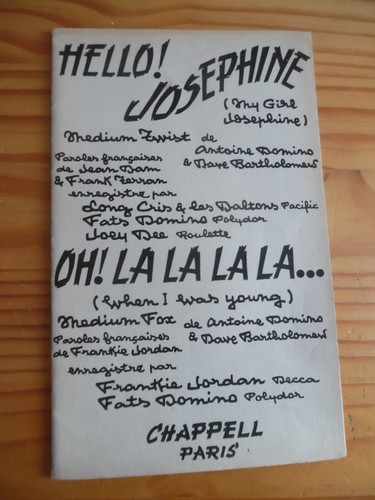 HELLO!
JOSEPHINE
(My Girl
Josephine)
Medium Twist de
Antoine Domino
& Dave Bartholomew
Paroles françaises
de Jean Dam
& Frank Ferran
enregistré par
Long Cris & les Daltons Pacific
Fats Domino Polydor
Joey Dee Roulette
OH! LA LA LA LA...
(When I was young)
Medium Fox de Antoine Domino
& Dave Bartholomew
Paroles françaises
de Frankie Jordan
enregistré par
Frankie Jordan Decca
Fats Domino Polydor
CHAPPELL
PARIS